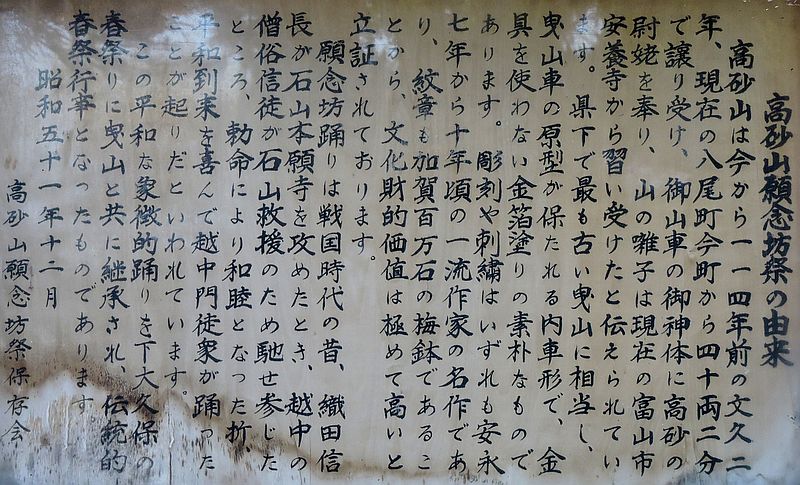 高砂山願念坊祭の由来
高砂山は今から一一四年前の文久二
年、現在の八尾町今町から四十両二分
で譲り受け、御山車の御神体に高砂の
尉姥を奉り、山の囃子は現在の富山市
安養寺から習い受けたと伝えられてい
ます。県下で最も古い曳山に相当し、
曳山車の原型が保たれる内車形で、金
具を使わない金箔塗りの素朴なもので
あります。彫刻や刺繍はいずれも安永
七年から十年頃の一流作家の名作であ
り、紋章も加賀百万石の梅鉢であるこ
とから、文化財的価値は極めて高いと
立証されております。
願念坊踊りは戦国時代の昔、織田信
長が石山本願寺を攻めたとき、越中の
僧俗信徒が石山救援のため馳せ参じた
ところ、勅命により和睦となった折、
平和到来を喜んで越中門徒衆が踊った
ことが起りだといわれています。
この平和な象徴的踊りを下大久保の
春祭りに曳山と共に継承され、伝統的
春祭行事となったものであります
昭和五十一年十二月
高砂山願念坊祭保存会